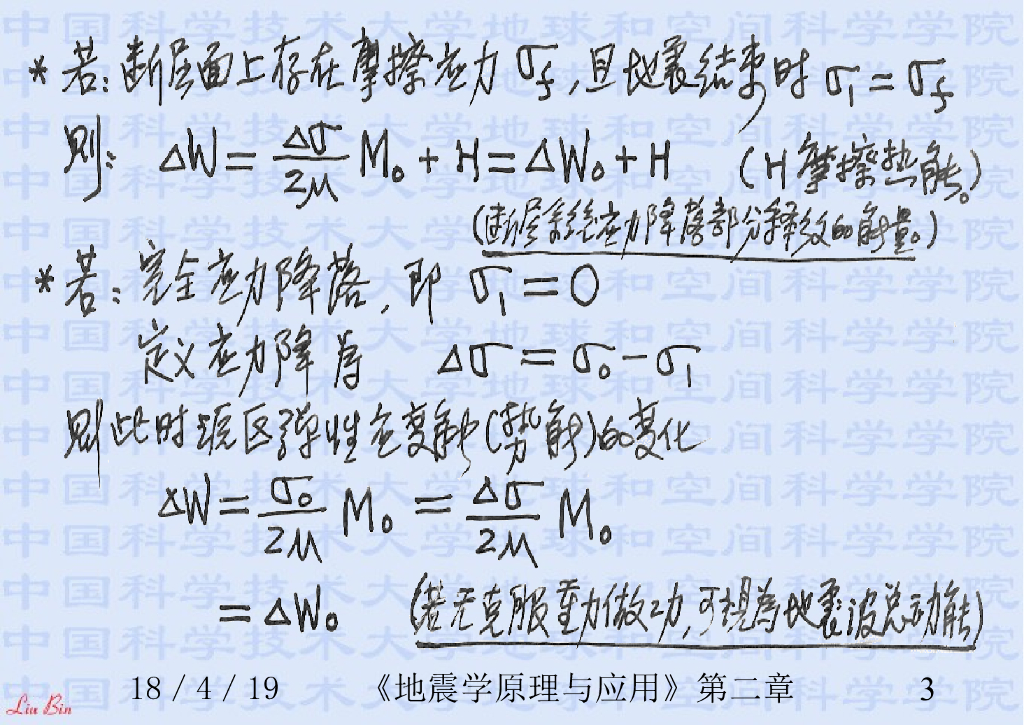 * 若：断层面上存在摩擦应力 σf，且地震结束时 σ1 = σf
则： ΔW = Δσ/2μ M₀ + H = ΔW₀ + H （H 摩擦热能。）
（断层系统应力降落部分释放的能量。）
* 若：完全应力降落，即 σ1 = 0
定义应力降为 Δσ = σ₀ - σ1
则此时源区弹性应变能（势能）的变化
ΔW = σ₀/2μ M₀ = Δσ/2μ M₀
= ΔW₀ （若无克服重力做功，可视为地震波总动能）
Liu Bin 18/4/19 《地震学原理与应用》第二章 3
中国科学技术大学地球和空间科学学院